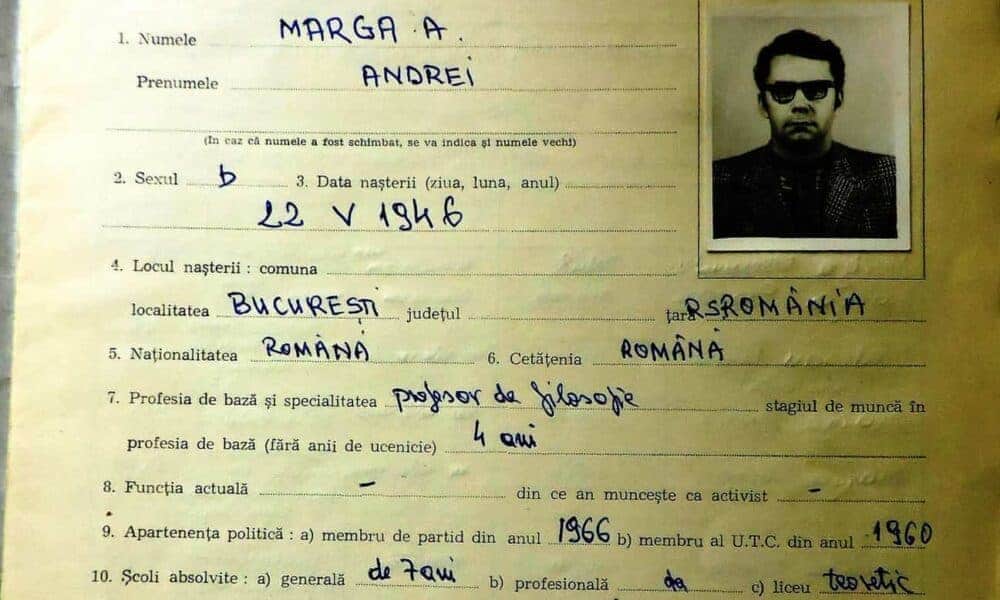 1. Numele MARGA A.
Prenumele ANDREI
(În caz că numele a fost schimbat, se va indica și numele vechi)
2. Sexul b 3. Data nașterii (ziua, luna, anul)
22 V 1946
4. Locul nașterii : comuna
localitatea BUCUREȘTI județul țara RSROMÂNIA
5. Naționalitatea ROMÂNĂ 6. Cetățenia ROMÂNĂ
7. Profesia de bază și specialitatea profesor de filosofie stagiul de muncă în
profesia de bază (fără anii de ucenicie) 4 ani
8. Funcția actuală - din ce an muncește ca activist -
9. Apartenența politică : a) membru de partid din anul 1966 b) membru al U.T.C. din anul 1960
10. Școli absolvite : a) generală de 7 ani b) profesională da c) liceu teoretic